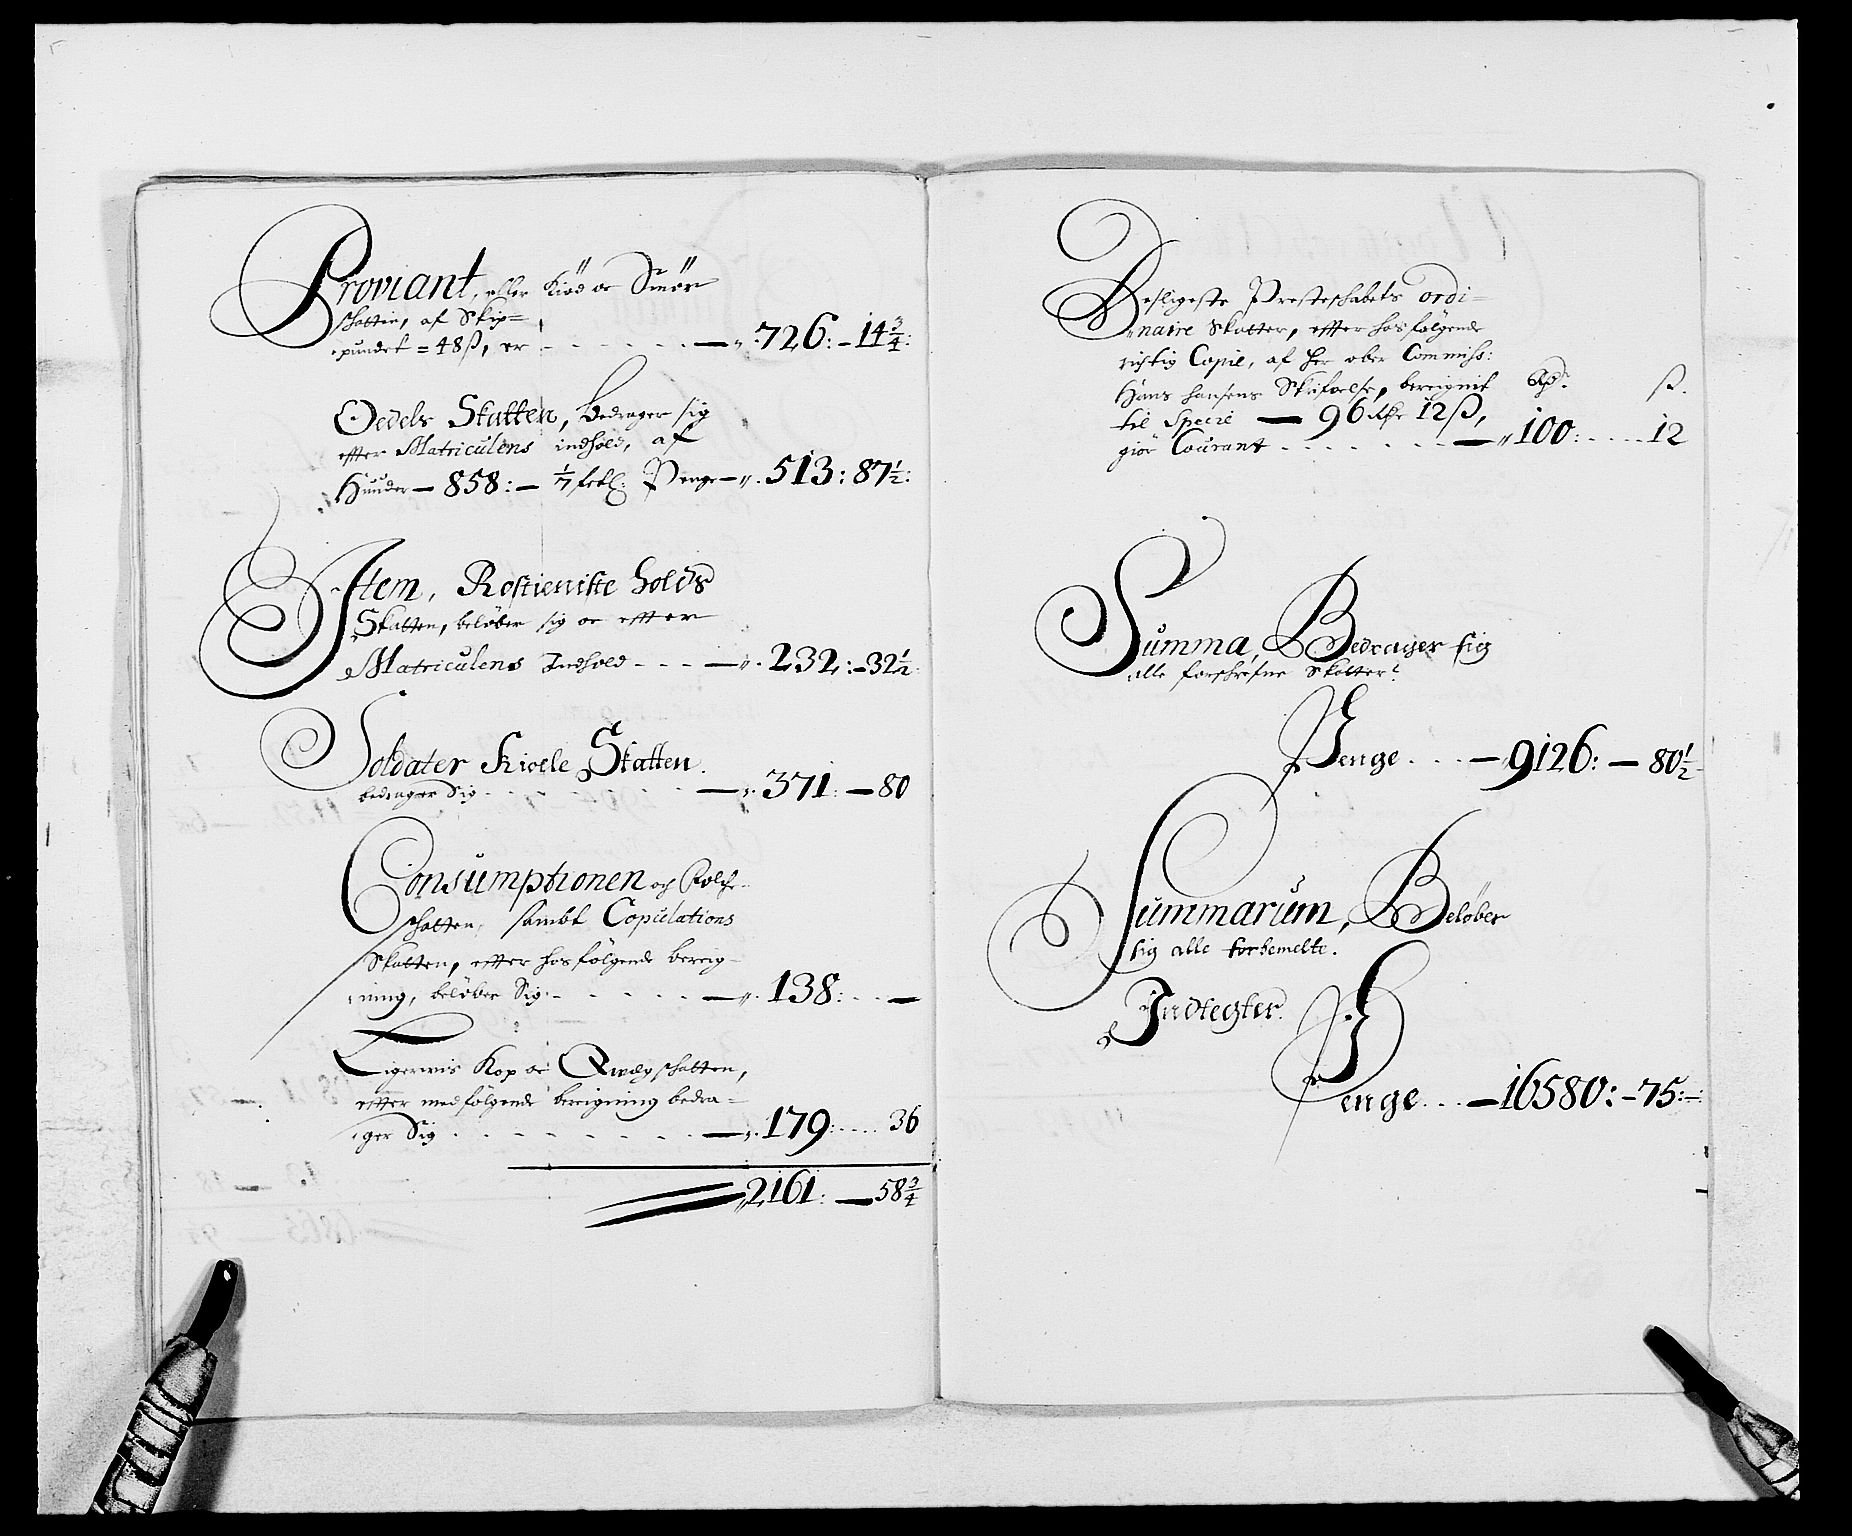 Proviant, eller Kiød oc Smør
schatten, af Skip=
pundet = 48 ß, er - - - - - - — 726: - 14 3/4:
Oedels Skatten, bedrager sig
efter Matriculens indhold, af
Hunder — 858: — 1/7 Penge — 513: 87 1/2:
Item, Rostieniste holds
Skatten, beløber sig oc effter
Matriculens Indhold - - - — 232: - 32 1/2
Soldater Kiole Skatten
bedrager Sig - - - - - - — 371: — 80
Consumptionen och Folche-
schatten, sambt Copulations
Skatten, effter hosfølgende bereig-
ning, beløber Sig - - - - - — 138: - - —
Ligerwis Kop oc Qwægschatten,
effter medfølgende bereigning bedra=
ger Sig - - - - - - - - — 179: - - - - 36
2161: — 58 3/4
Desligeste Presteschabets ordi=
naire Skatter, effter hosfølgende
richtig Copie, af Her ober Commiss:
Hans Hansens Skrifvelse, bereignit Rdr. ß.
til Specie — 96 Rdr 12 ß,
giør Courant - - - - - - — 100: - - - - 12
Summa, Bedrager sig
alle forschrefne Skatter
Penge . . . — 9126: — 80 1/2
Summarum, Beløber
sig alle forbemelte.
Indtegter.
Penge . . . — 16580: - 75: -: